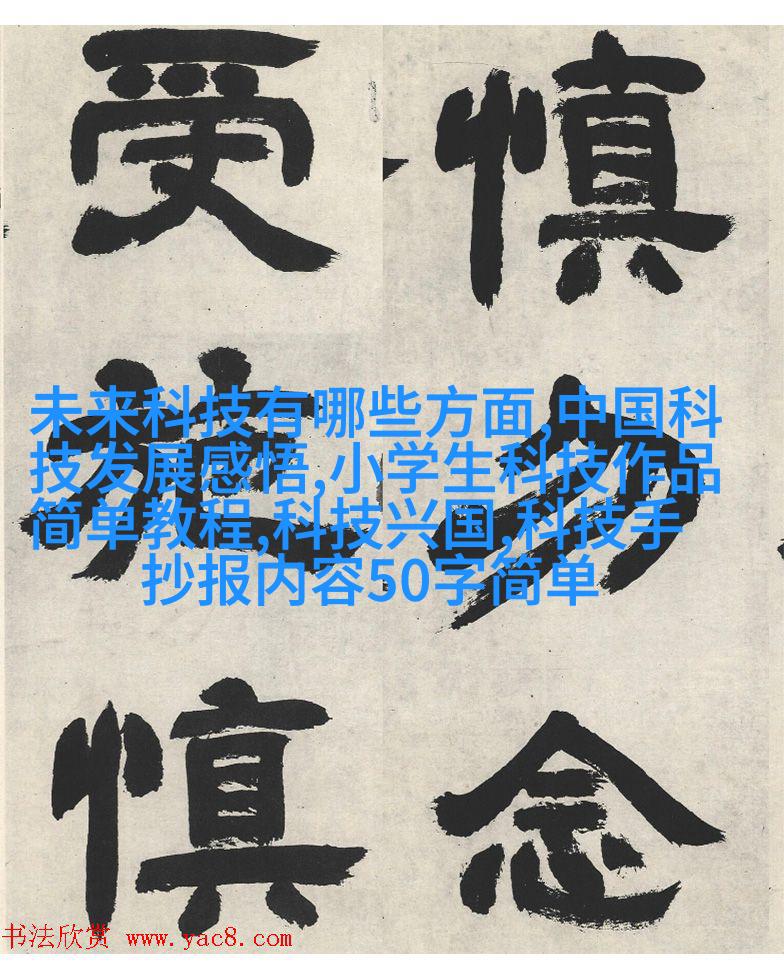 慎勿念
受施慎
未来科技有哪些方面,中国科
技发展感悟,小学生科技作品
简单教程,科技兴国,科技手
抄报内容50字简单
书法欣赏 www.yac8.com